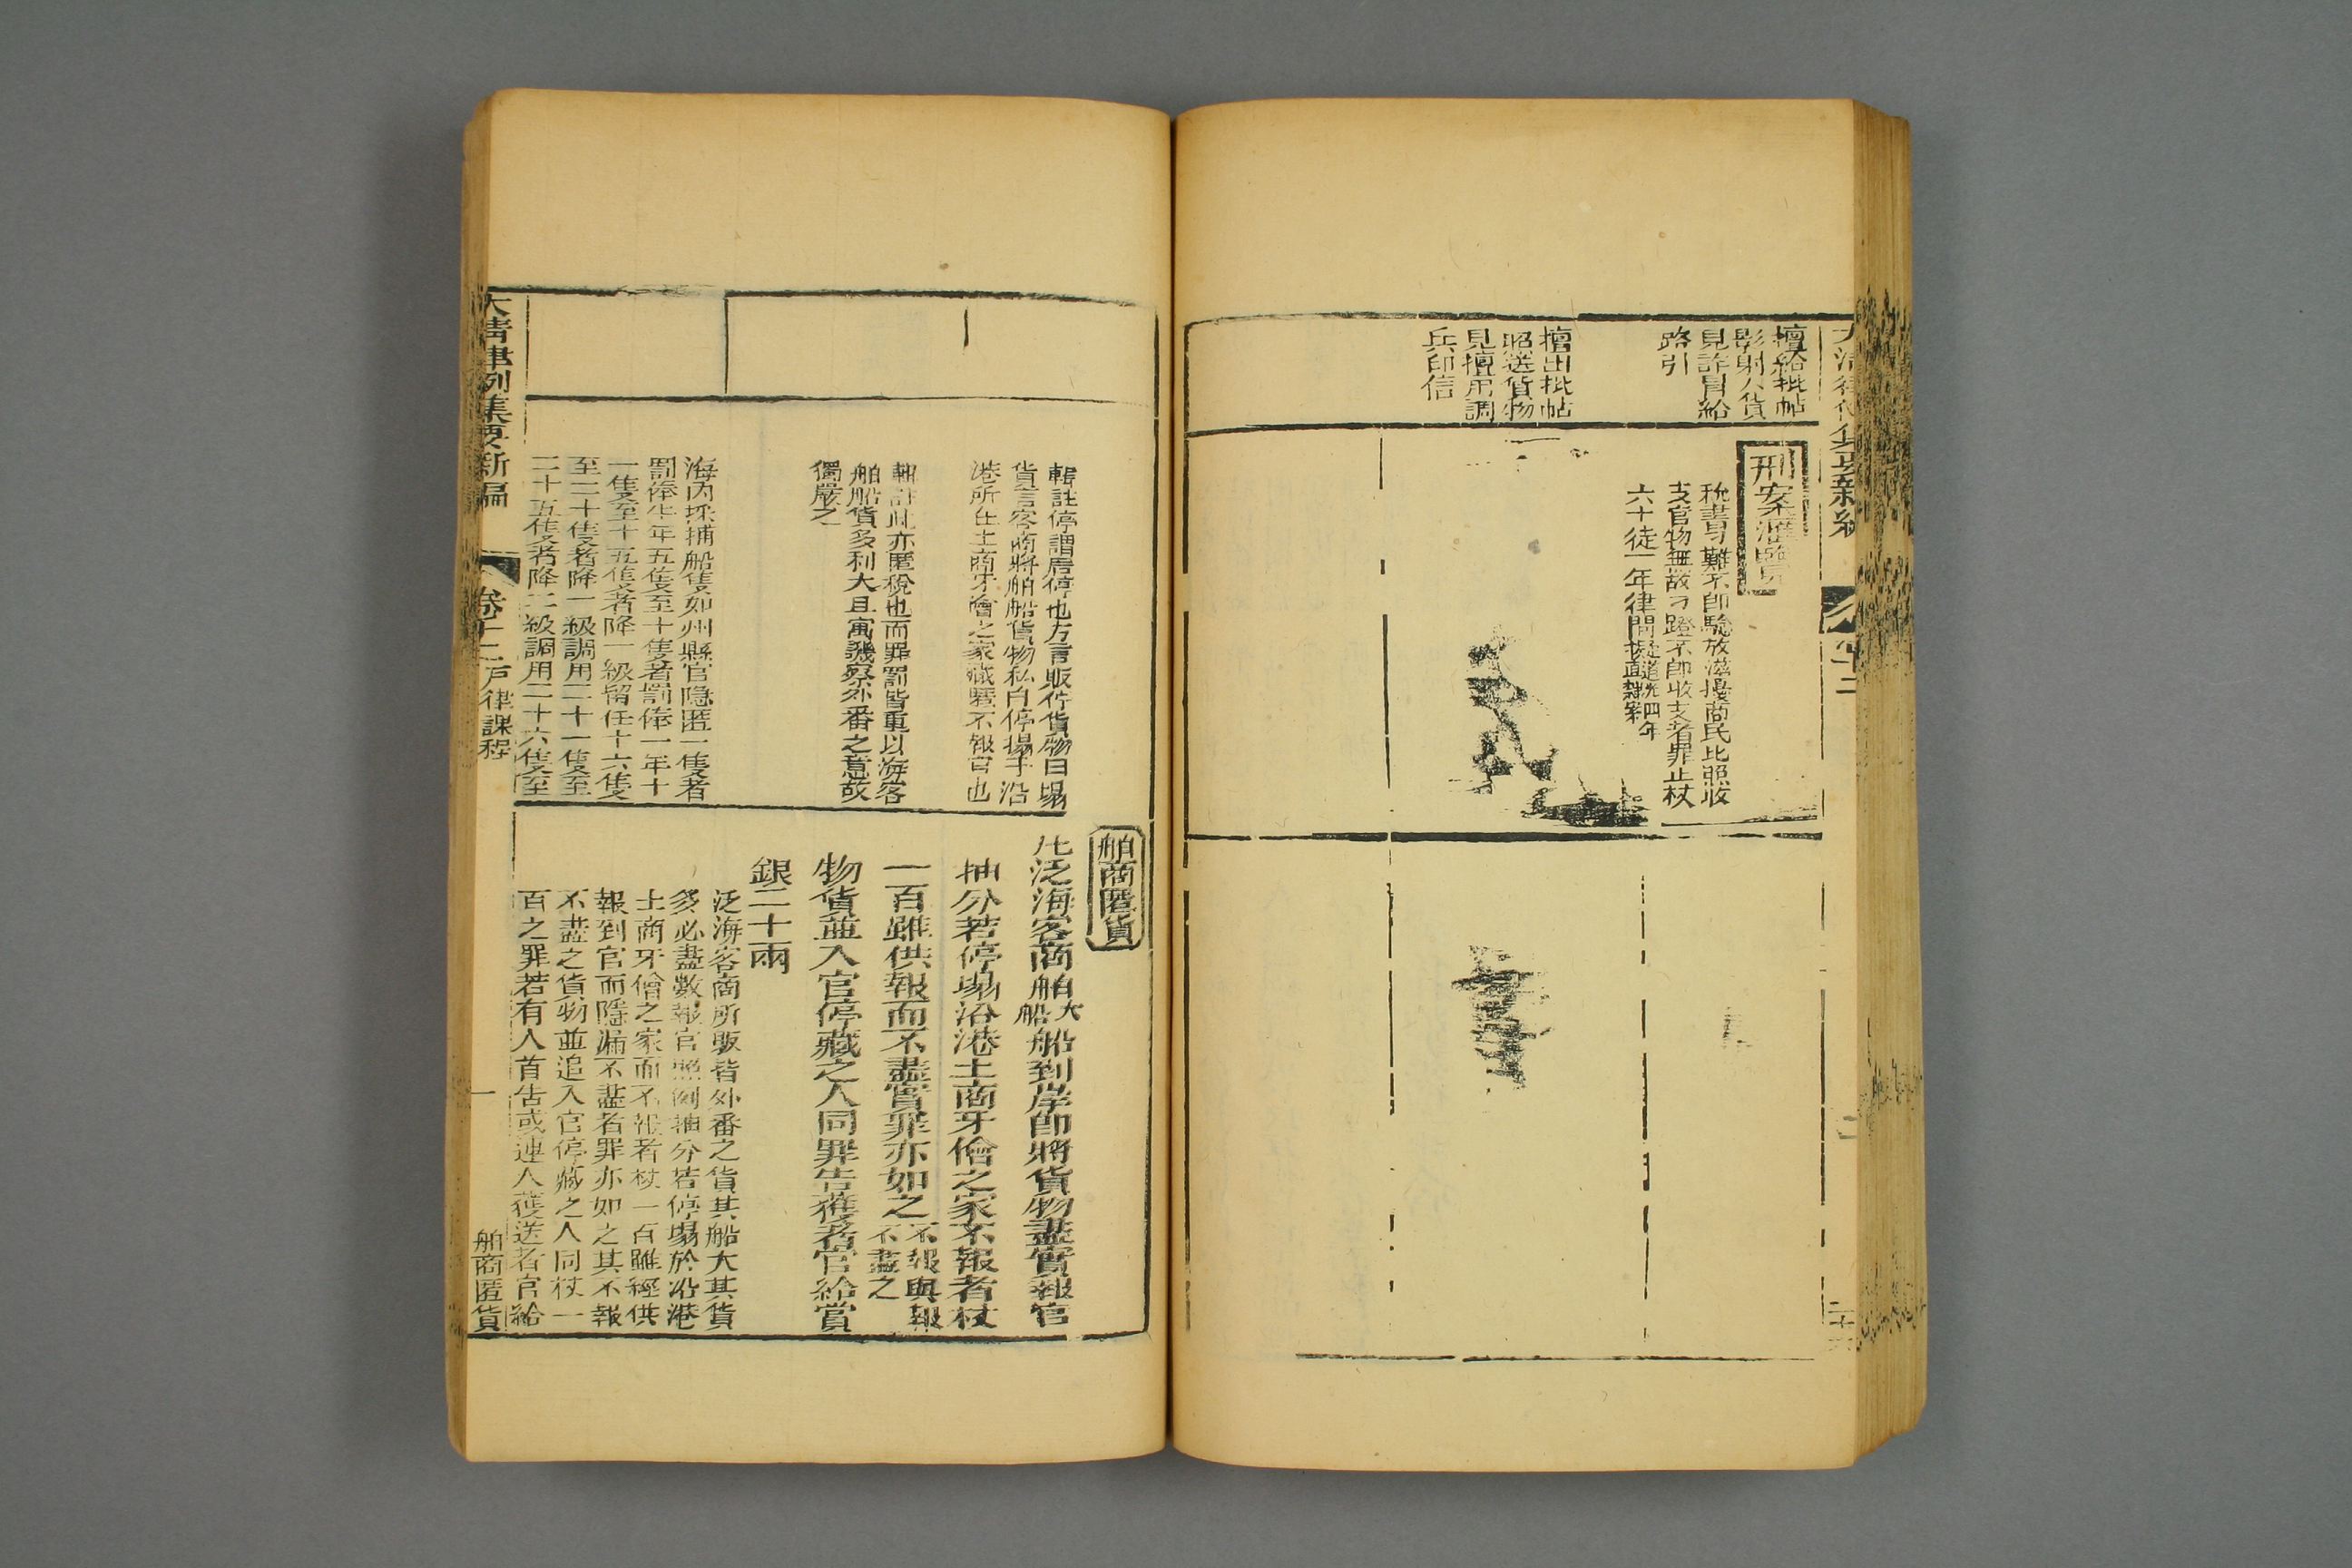 擅給批帖
影射人貨
見詐冒給
路引
擅出批帖
照送貨物
見擅用調
兵印信
刑案滙覽
稅書刁難不即驗放滋擾商民比照收
支官物無故刁蹬不即收支者罪止杖
六十徒一年律問擬道光四年
直隸案
輯註停謂居停也方言販佇貨物曰塲
貨言客商將舶船貨物私自停塲于沿
港所在土商牙儈之家藏匿不報官也
輯註此亦匿稅也而罪罰皆重以海客
舶船貨多利大且寓譏察外番之意故
獨嚴之
海內採捕船隻如州縣官隱匿一隻者
罰俸半年五隻至十隻者罰俸一年十
一隻至十五隻者降一級留任十六隻
至二十隻者降一級調用二十一隻至
二十五隻者降二級調用二十六隻至
舶商匿貨
凡泛海客商舶大船船到岸即將貨物盡實報官
抽分若停塲沿港土商牙儈之家不報者杖
一百雖供報而不盡實罪亦如之不報與報不盡之
物貨並入官停藏之人同罪告獲者官給賞
銀二十兩
泛海客商所販皆外番之貨其船大其貨
多必盡數報官照例抽分若停塲於沿港
土商牙儈之家而不報者杖一百雖經供
報到官而隱漏不盡者罪亦如之其不報
不盡之貨物並追入官停藏之人同杖一
百之罪若有人首告或連人獲送者官給
大清律例集要新編 卷十二戶律課程 一 舶商匿貨